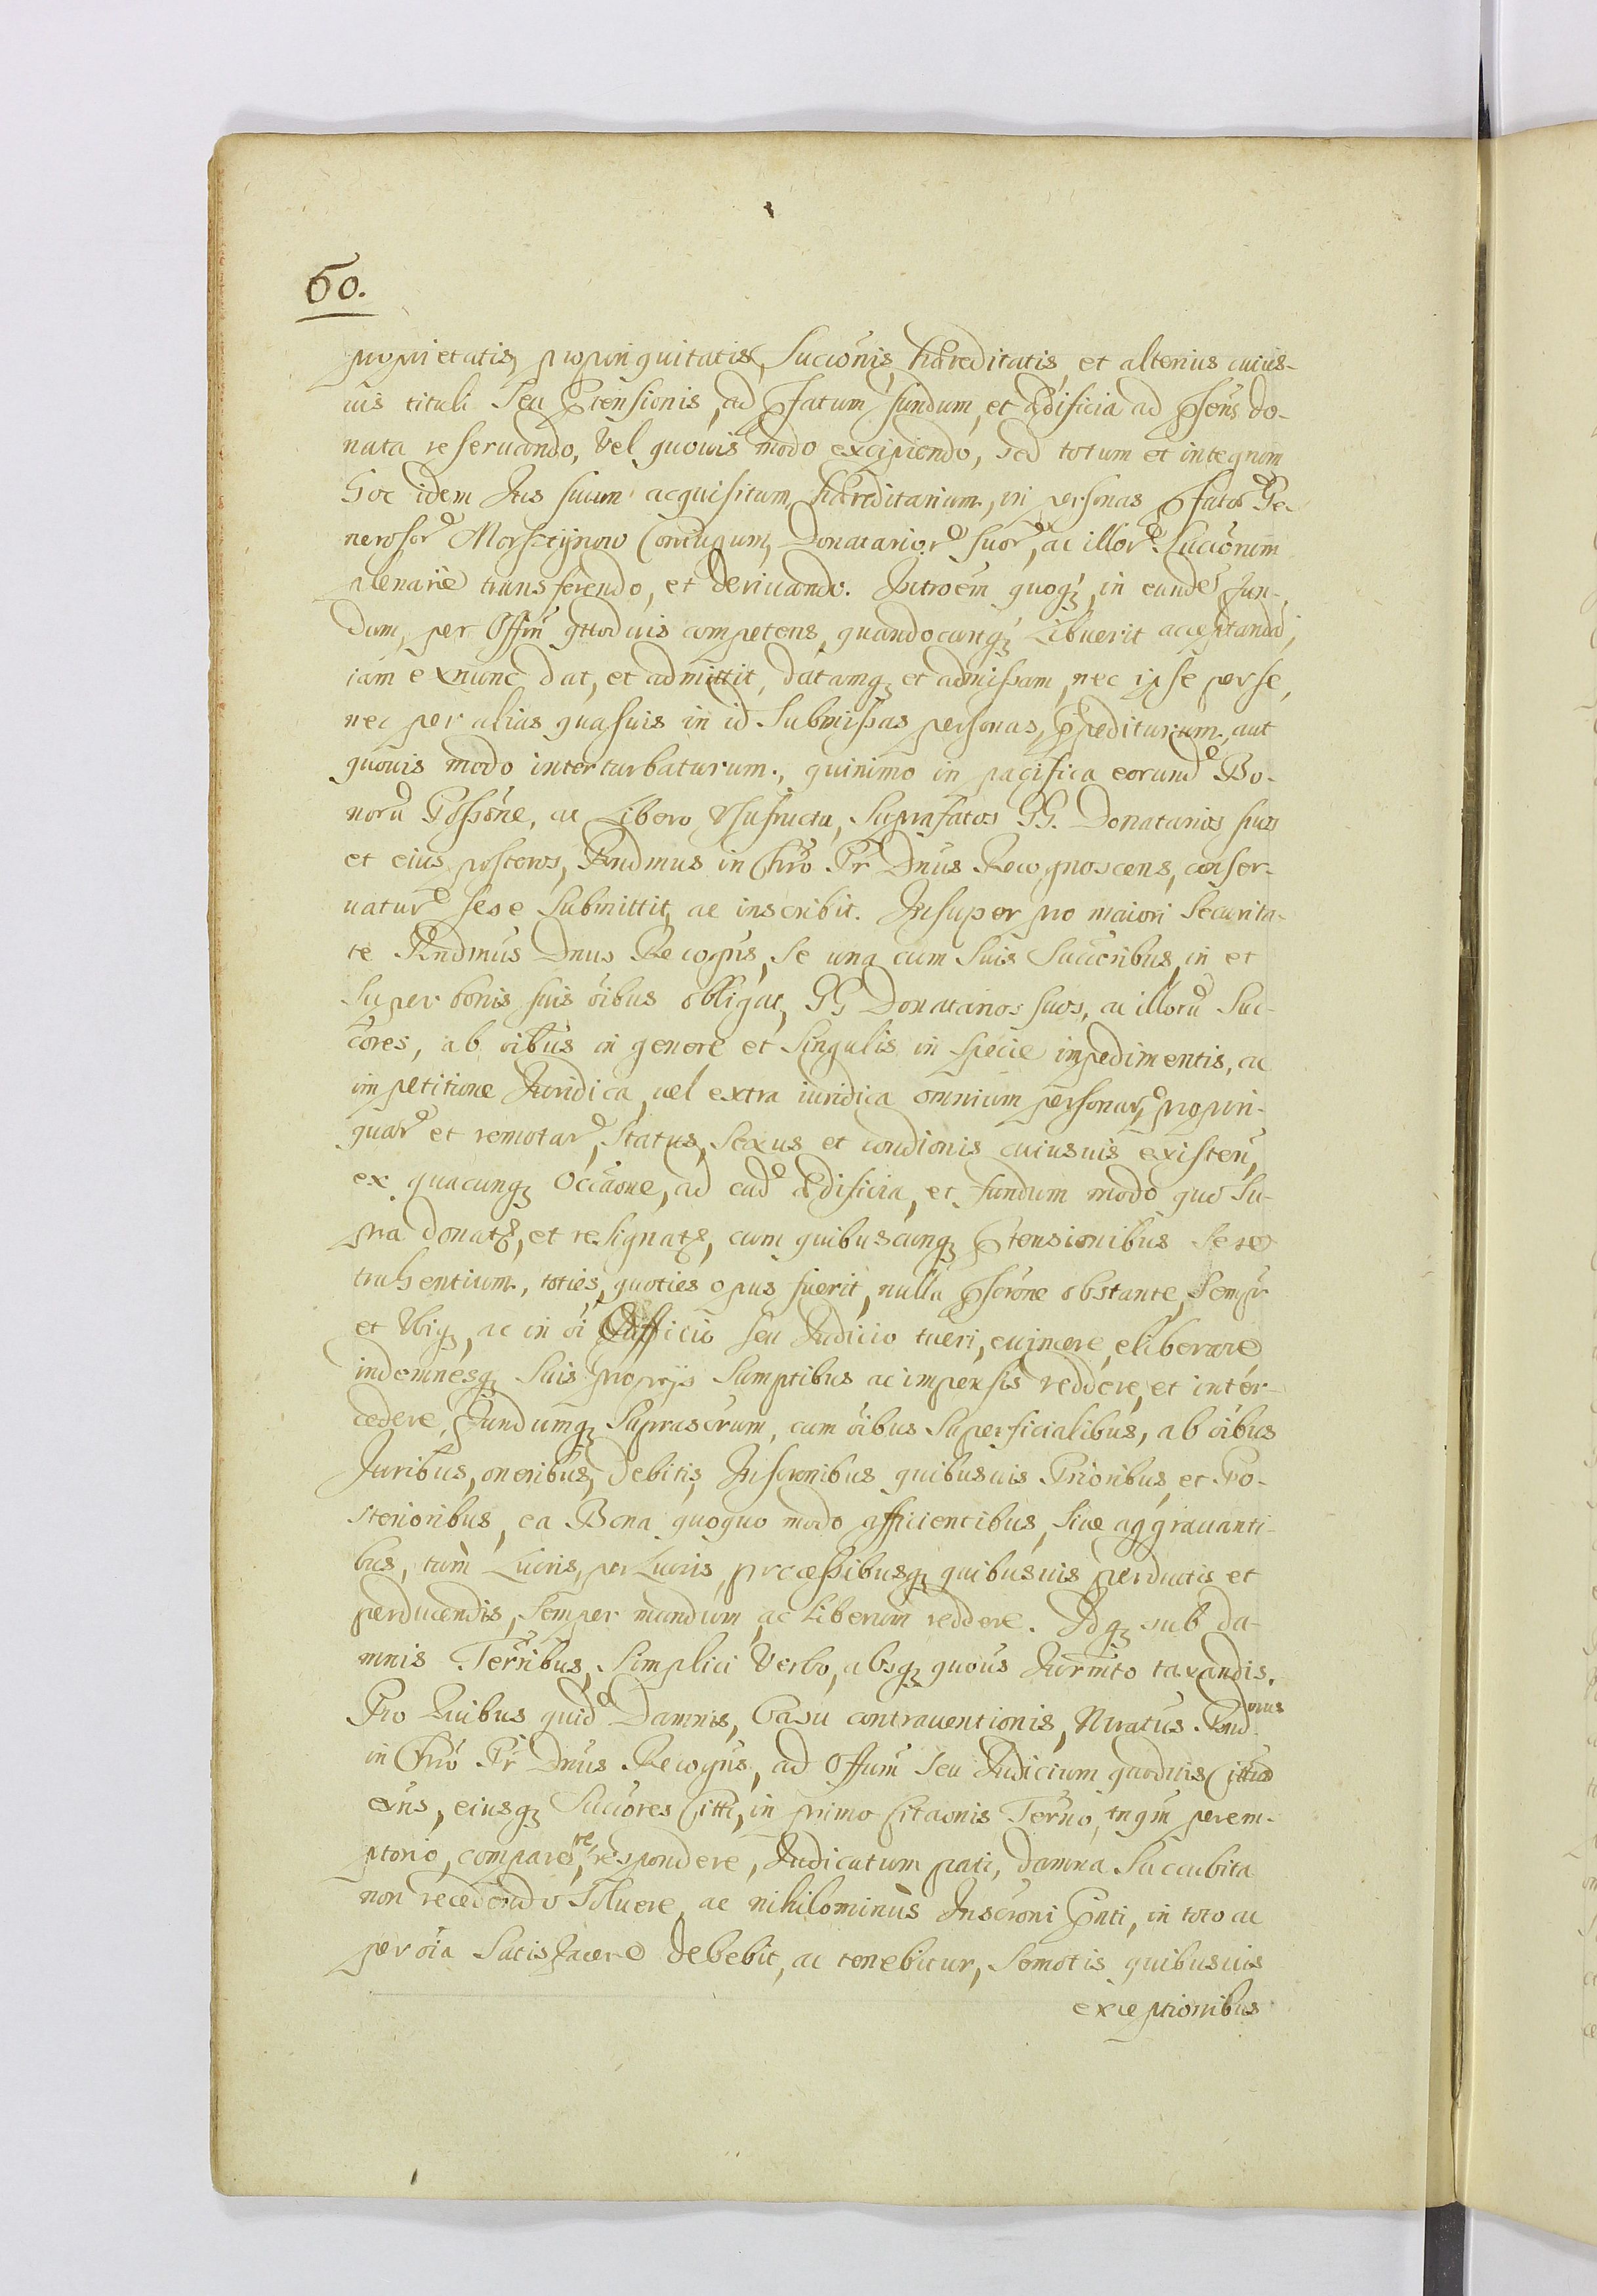 60.
proprietatis, propinquitatis, Succionis, hæreditatis, et alterius cuius-
uis tituli Seu Prtensionis, ad Prfatum fundum, et ædificia ad Prsens do-
nata reseruando, Vel quouis modo excipiendo, sed totum et integrum
hoc idem Ius suum acquisitum, hæreditarium, in personas Prfator Ge-
nerosor Morsztynow Coniugum, Donatarior suor, ac illor Succionum
plenariè transferendo, et deriuando. Introem quoq, in eunde fun-
dum, per Offm quoduis competens, quandocunq Libuerit acceptanda,
iam exnunc dat, et admittit, datamq et admissam, nec ipse per se,
nec per alias quasuis in id Submissas personas, Prpediturum, aut
quouis modo interturbaturum, quinimo in pacifica eorund Bo-
noru Possone, ac Libero Vsufructu, Suprafatos GG. Donatarios suos
et eius posteros, Rndmus in Chro Pr Dnus Recognoscens, conser-
uatur sese Submittit, ac inscribit. Insuper pro maiori Securita-
te Rndmus Dnus Recogns, Se una cum Suis Succoribus, in et
Super bonis suis oibus obligat, GG Donatarios suos, ac illoru Suc-
cores, ab oibus in genere et Singulis in Specie impedimentis, ac
impetitione Iuridica, uel extra iuridica omnium personar, propin-
quar et remotar, Status, Sexus et condionis cuiusuis existen,
ex quacunq Occaone, ad ead ædificia, et fundum modo quo Su-
pra donat, et resignat, cum quibuscunq Prtensionibus Sese
trahentium, toties, quoties opus fuerit, nulla Prscrone obstante, Sempr
et Vbiq, ac in oi Officio seu Iudicio tueri, euincere, eliberare
indemnesq Suis proprijs Sumptibus ac impensis reddere, et inter-
cedere, Fundumq Suprascrum, cum oibus Superficialibus, ab oibus
Iuribus, oneribus, debitis, Inscronibus quibusuis Prioribus, et Po-
sterioribus, ea Bona quoquo modo afficientibus, Siue aggrauanti-
bus, tum Lucris, perLucris, processibusq quibusuis perductis et
perducendis, Semper mundum, ac Liberum reddere. Idq sub da-
mnis Terribus, Simplici Verbo, absq quouis Iurmto taxandis.
Pro Quibus quid Damnis, Casu contrauentionis, Nratus Rndmus
in Chro Pr Dnus Recogns, ad Offum seu Iudicium quoduis Cittus
exns, eiusq Succores Citti, in primo Citaonis Terno, tnqm perem-
ptorio, comparere, respondere, Iudicatum pati, damna Succubita
non recedendo Soluere, ac nihilominus Inscroni Prnti, in toto ac
per oia Satisfacere debebit, ac tenebitur, Semotis quibusuis
exceptionibus